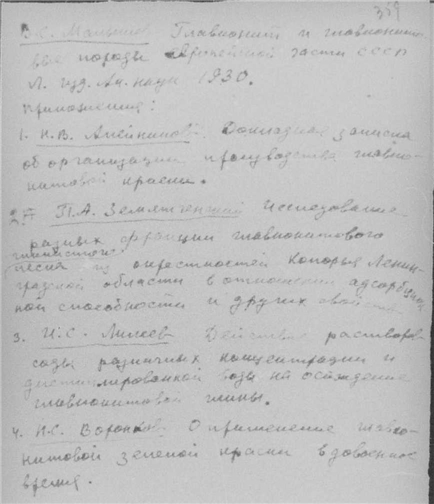 359
В.С. Малышев Глауконит и глауконито-
вые породы Европейской части СССР
Л. изд. Ак. наук 1930.
приложения:
1. Н.В. Алейников. Докладная записка
об организации производства глауко-
нитовой краски.
2. П.А. Земятченский Исследование
разных фракции глауконитового
глинистого
песка из окрестностей Копорья Ленин-
градской области в отношении адсорбцион
ной способности и других свойств
3. И.С. Лилеев Действие растворов
соды различных концентраций и
дистилированной воды на осаждение
глауконитовой глины.
4. Н.С. Воронков О применение глауко-
нитовой зеленой краски в довоенное
время.